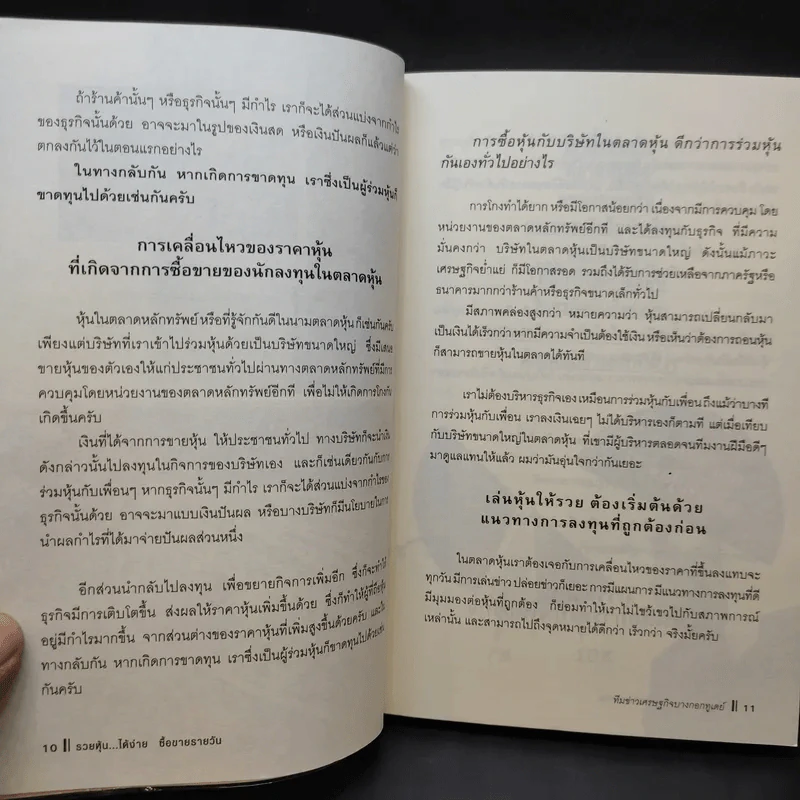 ถ้าร้านค้านั้นๆ หรือธุรกิจนั้นๆ มีกำไร เราก็จะได้ส่วนแบ่งจากกำไร
ของธุรกิจนั้นด้วย อาจจะมาในรูปของเงินสด หรือเงินปันผลก็แล้วแต่ว่า
ตกลงกันไว้ในตอนแรกอย่างไร
ในทางกลับกัน หากเกิดการขาดทุน เราซึ่งเป็นผู้ร่วมหุ้นก็
ขาดทุนไปด้วยเช่นกันครับ
การเคลื่อนไหวของราคาหุ้น
ที่เกิดจากการซื้อขายของนักลงทุนในตลาดหุ้น
หุ้นในตลาดหลักทรัพย์ หรือที่รู้จักกันดีในนามตลาดหุ้น ก็เช่นกันครับ
เพียงแต่บริษัทที่เราเข้าไปร่วมหุ้นด้วยเป็นบริษัทขนาดใหญ่ ซึ่งมีเสนอ
ขายหุ้นของตัวเองให้แก่ประชาชนทั่วไปผ่านทางตลาดหลักทรัพย์ที่มีการ
ควบคุมโดยหน่วยงานของตลาดหลักทรัพย์อีกที เพื่อไม่ให้เกิดการโกงกัน
เกิดขึ้นครับ
เงินที่ได้จากการขายหุ้น ให้ประชาชนทั่วไป ทางบริษัทก็จะนำเงิน
ดังกล่าวนั้นไปลงทุนในกิจการของบริษัทเอง และก็เช่นเดียวกันกับการ
ร่วมหุ้นกับเพื่อนๆ หากธุรกิจนั้นๆ มีกำไร เราก็จะได้ส่วนแบ่งจากกำไรของ
ธุรกิจนั้นด้วย อาจจะมาแบบเงินปันผล หรือบางบริษัทก็มีนโยบายในการ
นำผลกำไรที่ได้มาจ่ายปันผลส่วนหนึ่ง
อีกส่วนนำกลับไปลงทุน เพื่อขยายกิจการเพิ่มอีก ซึ่งก็จะทำให้
ธุรกิจมีการเติบโตขึ้น ส่งผลให้ราคาหุ้นเพิ่มขึ้นด้วย ซึ่งก็ทำให้ผู้ที่ถือหุ้น
อยู่มีกำไรมากขึ้น จากส่วนต่างของราคาหุ้นที่เพิ่มสูงขึ้นด้วยครับ และใน
ทางกลับกัน หากเกิดการขาดทุน เราซึ่งเป็นผู้ร่วมหุ้นก็ขาดทุนไปด้วยเช่น
กันครับ
10 รวยหุ้น...ได้ง่าย ซื้อขายรายวัน
การซื้อหุ้นกับบริษัทในตลาดหุ้น ดีกว่าการร่วมหุ้น
กันเองทั่วไปอย่างไร
การโกงทำได้ยาก หรือมีโอกาสน้อยกว่า เนื่องจากมีการควบคุม โดย
หน่วยงานของตลาดหลักทรัพย์อีกที และได้ลงทุนกับธุรกิจ ที่มีความ
มั่นคงกว่า บริษัทในตลาดหุ้นเป็นบริษัทขนาดใหญ่ ดังนั้นแม้ภาวะ
เศรษฐกิจย่ำแย่ ก็มีโอกาสรอด รวมถึงได้รับการช่วยเหลือจากภาครัฐหรือ
ธนาคารมากกว่าร้านค้าหรือธุรกิจขนาดเล็กทั่วไป
มีสภาพคล่องสูงกว่า หมายความว่า หุ้นสามารถเปลี่ยนกลับมา
เป็นเงินได้เร็วกว่า หากมีความจำเป็นต้องใช้เงิน หรือเห็นว่าต้องการถอนหุ้น
ก็สามารถขายหุ้นในตลาดได้ทันที
เราไม่ต้องบริหารธุรกิจเอง เหมือนการร่วมหุ้นกับเพื่อน ถึงแม้ว่าบางที
การร่วมหุ้นกับเพื่อน เราลงเงินเฉยๆ ไม่ได้บริหารเองก็ตามที แต่เมื่อเทียบ
กับบริษัทขนาดใหญ่ในตลาดหุ้น ที่เขามีผู้บริหารตลอดจนทีมงานฝีมือดีๆ
มาดูแลแทนให้แล้ว ผมว่ามันอุ่นใจกว่ากันเยอะ
เล่นหุ้นให้รวย ต้องเริ่มต้นด้วย
แนวทางการลงทุนที่ถูกต้องก่อน
ในตลาดหุ้นเราต้องเจอกับการเคลื่อนไหวของราคาที่ขึ้นลงแทบจะ
ทุกวัน มีการเล่นข่าว ปล่อยข่าวก็เยอะ การมีแผนการ มีแนวทางการลงทุนที่ดี
มีมุมมองต่อหุ้นที่ถูกต้อง ก็ย่อมทำให้เราไม่ไขว้เขวไปกับสภาพการณ์
เหล่านั้น และสามารถไปถึงจุดหมายได้ดีกว่า เร็วกว่า จริงมั้ยครับ
ทีมข่าวเศรษฐกิจบางกอกทูเดย์ 11